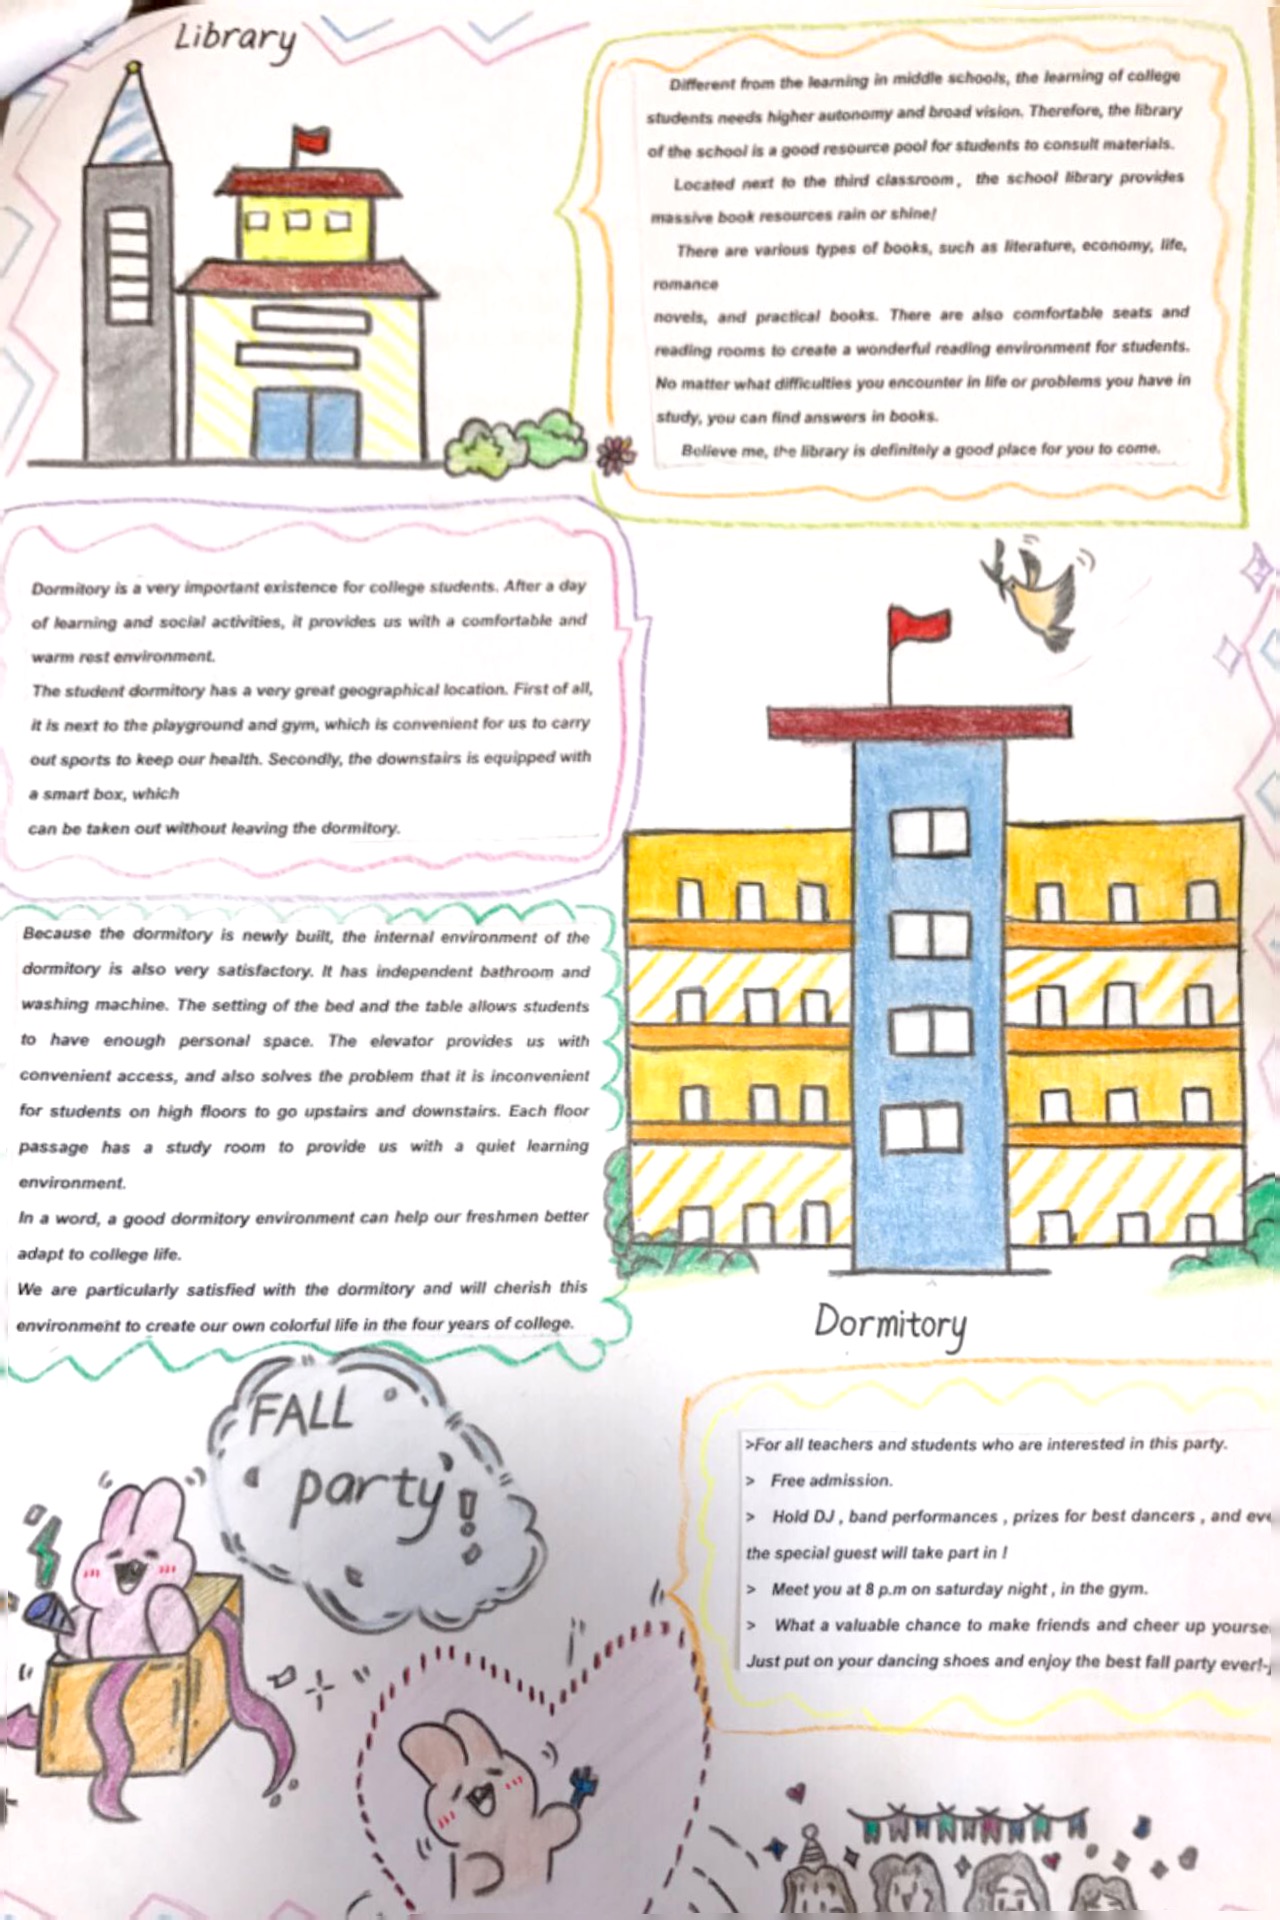 Library
Different from the learning in middle schools, the learning of college
students needs higher autonomy and broad vision. Therefore, the library
of the school is a good resource pool for students to consult materials.
Located next to the third classroom, the school library provides
massive book resources rain or shine!
There are various types of books, such as literature, economy, life,
romance
novels, and practical books. There are also comfortable seats and
reading rooms to create a wonderful reading environment for students.
No matter what difficulties you encounter in life or problems you have in
study, you can find answers in books.
Believe me, the library is definitely a good place for you to come.
Dormitory is a very important existence for college students. After a day
of learning and social activities, it provides us with a comfortable and
warm rest environment.
The student dormitory has a very great geographical location. First of all,
it is next to the playground and gym, which is convenient for us to carry
out sports to keep our health. Secondly, the downstairs is equipped with
a smart box, which
can be taken out without leaving the dormitory.
Because the dormitory is newly built, the internal environment of the
dormitory is also very satisfactory. It has independent bathroom and
washing machine. The setting of the bed and the table allows students
to have enough personal space. The elevator provides us with
convenient access, and also solves the problem that it is inconvenient
for students on high floors to go upstairs and downstairs. Each floor
passage has a study room to provide us with a quiet learning
environment.
In a word, a good dormitory environment can help our freshmen better
adapt to college life.
We are particularly satisfied with the dormitory and will cherish this
environment to create our own colorful life in the four years of college.
Dormitory
FALL
party!
>For all teachers and students who are interested in this party.
> Free admission.
> Hold DJ , band performances , prizes for best dancers , and
the special guest will take part in !
> Meet you at 8 p.m on saturday night , in the gym.
> What a valuable chance to make friends and cheer up
Just put on your dancing shoes and enjoy the best fall party ever!